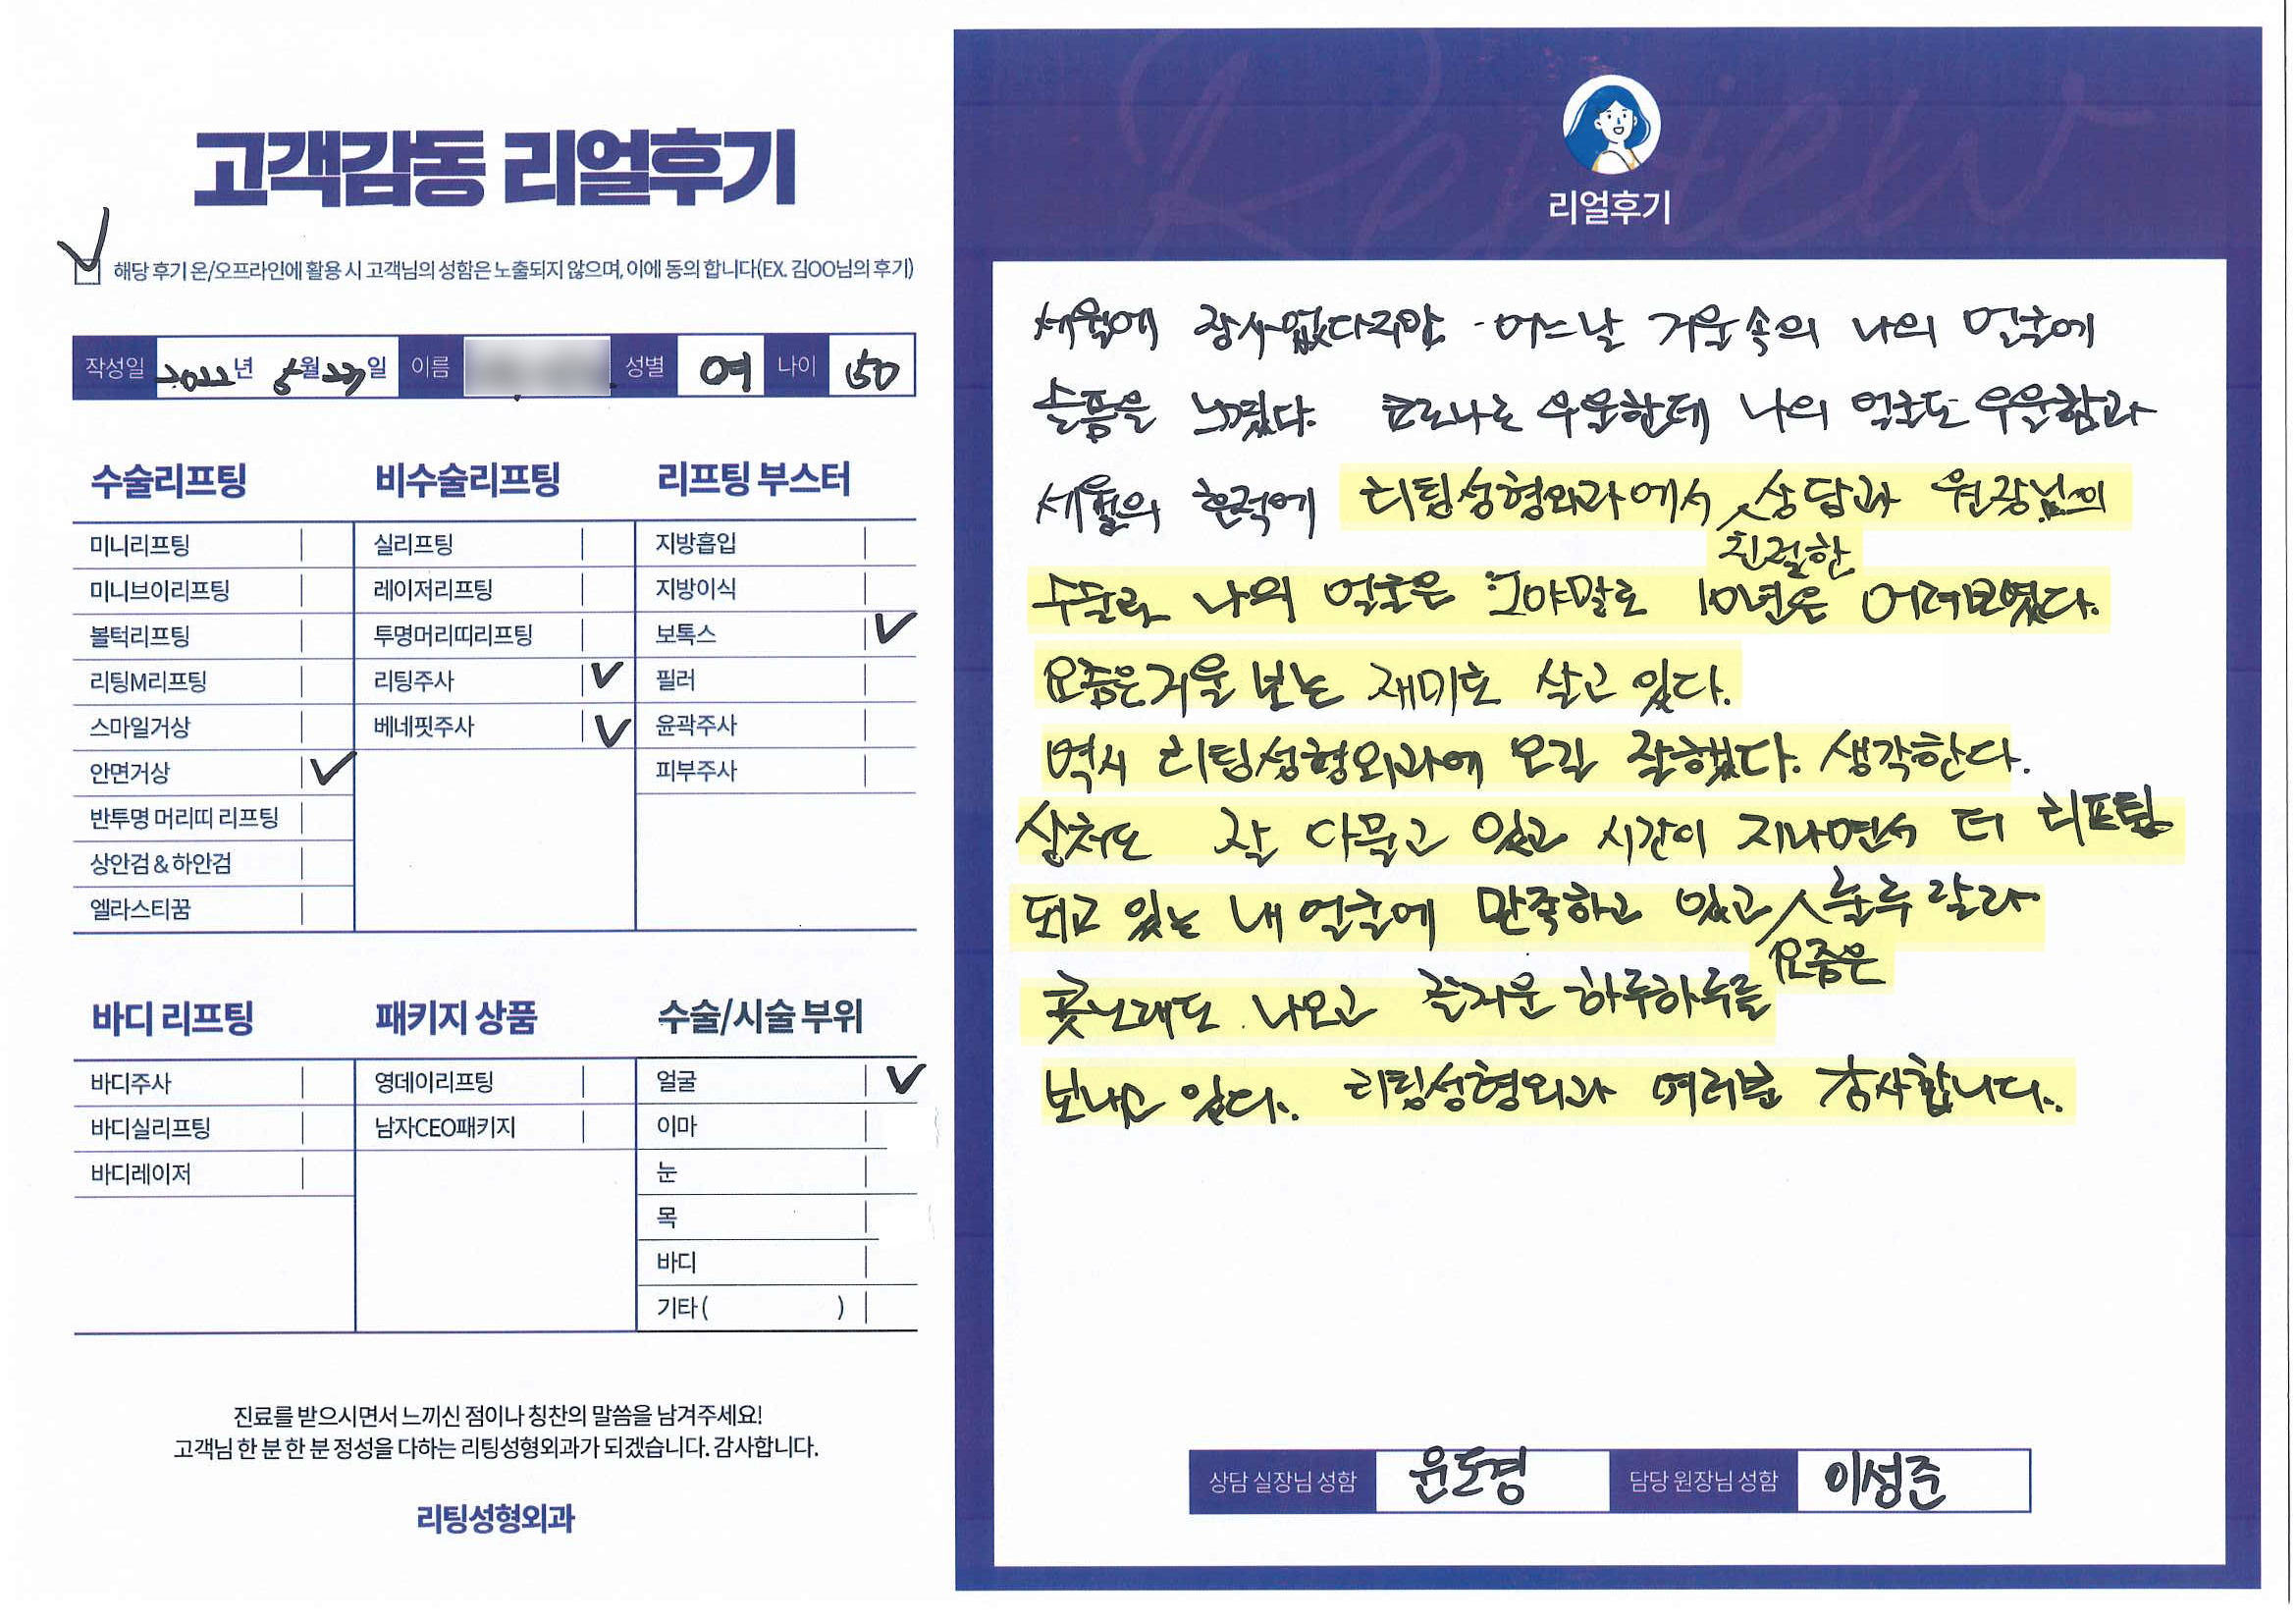 고객감동 리얼후기
해당 후기 온/오프라인에 활용 시 고객님의 성함은 노출되지 않으며, 이에 동의 합니다(EX. 김OO님의 후기)
작성일 2022년 5월 23일 이름 성별 여 나이 50
수술리프팅
미니리프팅
미니브이리프팅
볼턱리프팅
리팅M리프팅
스마일거상
안면거상
반투명 머리띠 리프팅
상안검 & 하안검
엘라스티꿈
비수술리프팅
실리프팅
레이저리프팅
투명머리띠리프팅
리팅주사
베네핏주사
리프팅 부스터
지방흡입
지방이식
보톡스
필러
윤곽주사
피부주사
바디 리프팅
바디주사
바디실리프팅
바디레이저
패키지 상품
영데이리프팅
남자CEO패키지
수술/시술 부위
얼굴
이마
눈
목
바디
기타 ( )
진료를 받으시면서 느끼신 점이나 칭찬의 말씀을 남겨주세요!
고객님 한 분 한 분 정성을 다하는 리팅성형외과가 되겠습니다. 감사합니다.
리팅성형외과
Review
리얼후기
세월에 장사없다지만 어느날 거울속의 나의 얼굴에
슬픔을 느꼈다. 코로나로 우울한데 나의 얼굴도 우울함과
세월의 흔적에 리팅성형외과에서 친절한 상담과 원장님의
수술로 나의 얼굴은 그야말로 10년은 어려보였다.
요즘은 거울 보는 재미로 살고 있다.
역시 리팅성형외과에 오길 잘했다. 생각한다.
상처도 잘 다물고 있고 시간이 지나면서 더 리프팅
되고 있는 내 얼굴에 만족하고 있고 요즘은 룰루랄라
콧노래도 나오고 즐거운 하루하루를
보내고 있다. 리팅성형외과 여러분 감사합니다.
상담 실장님 성함 윤도경 담당 원장님 성함 이성준